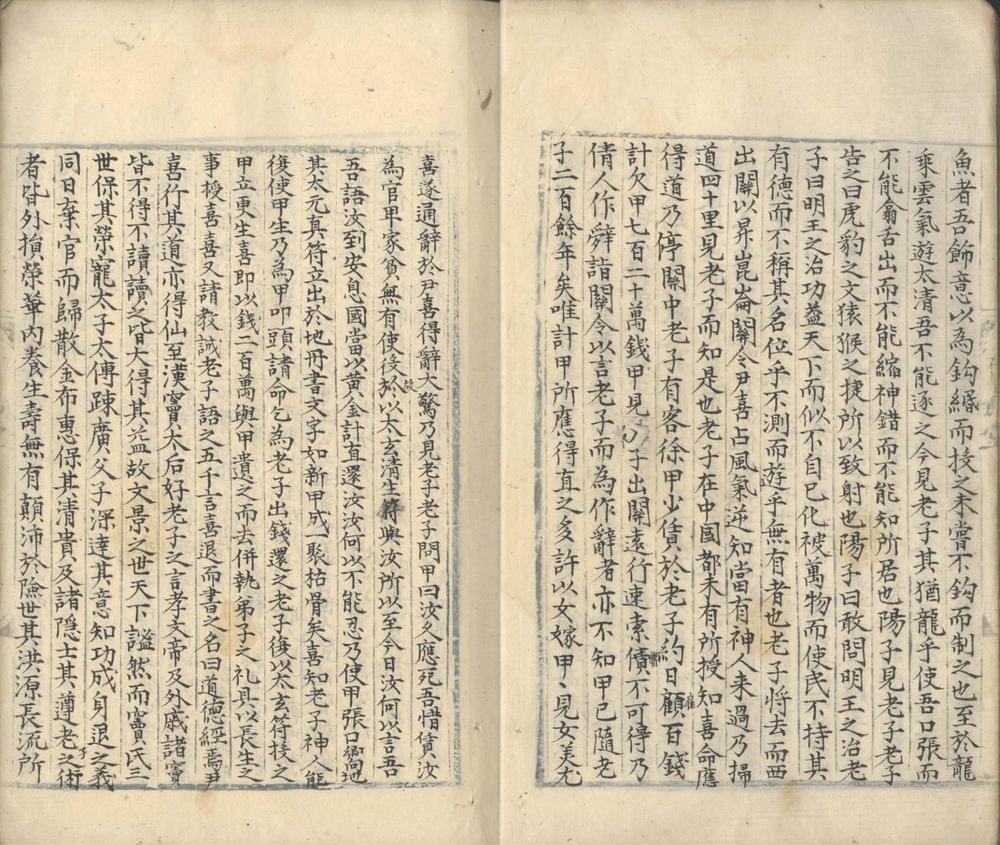 魚者吾飾意以為鈎緡而投之未嘗不鈎而制之也至於龍
乘雲氣遊太清吾不能逐之今見老子其猶龍乎使吾口張而
不能翕舌出而不能縮神錯而不能知所居也陽子見老子老子
告之曰虎豹之文猿猴之捷所以致射也陽子曰敢問明王之治老
子曰明王之治功蓋天下而似不自已化被萬物而使民不恃其
有德而不稱其名位乎不測而遊乎無有者也老子將去而西
出關以昇崑崙關令尹喜占風氣逆知當有神人来過乃掃
道四十里見老子而知是也老子在中國都未有所授知喜命應
得道乃停關中老子有客徐甲少賃於老子約日顧百錢
雇
計欠甲七百二十萬錢甲見老子出關遠行速索債不可得乃
倩人作辭詣關令以言老子而為作辭者亦不知甲已隨老
子二百餘年矣唯計甲所應得直之多許以女嫁甲〻見女美尤
喜遂通辭於尹喜得辭大驚乃見老子老子問甲曰汝久應死吾惜賃汝
為官卑家貧無有使役於以太玄清生符與汝所以至今日汝何以言吾
故
吾語汝到安息國當以黄金計直還汝汝何以不能忍乃使甲張口向地
其太元真符立出於地丹書文字如新甲成一聚枯骨矣喜知老子神人能
復使甲生乃為甲叩頭請命乞為老子出錢還之老子復以太玄符投之
甲立更生喜即以錢二百萬與甲遣之而去併執弟子之礼具以長生之
事授喜喜又請教誡老子語之五千言喜退而書之名曰道德經焉尹
喜行其道亦得仙至漢竇太后好老子之言孝文帝及外戚諸竇
皆不得不讀讀之皆大得其益故文景之世天下謐然而竇氏三
世保其榮寵太子太傅踈廣父子深達其意知功成身退之義
同日棄官而歸散金布惠保其清貴及諸隱士其遵老之術
子
者皆外損榮華内養生壽無有顛沛於險世其洪源長流所